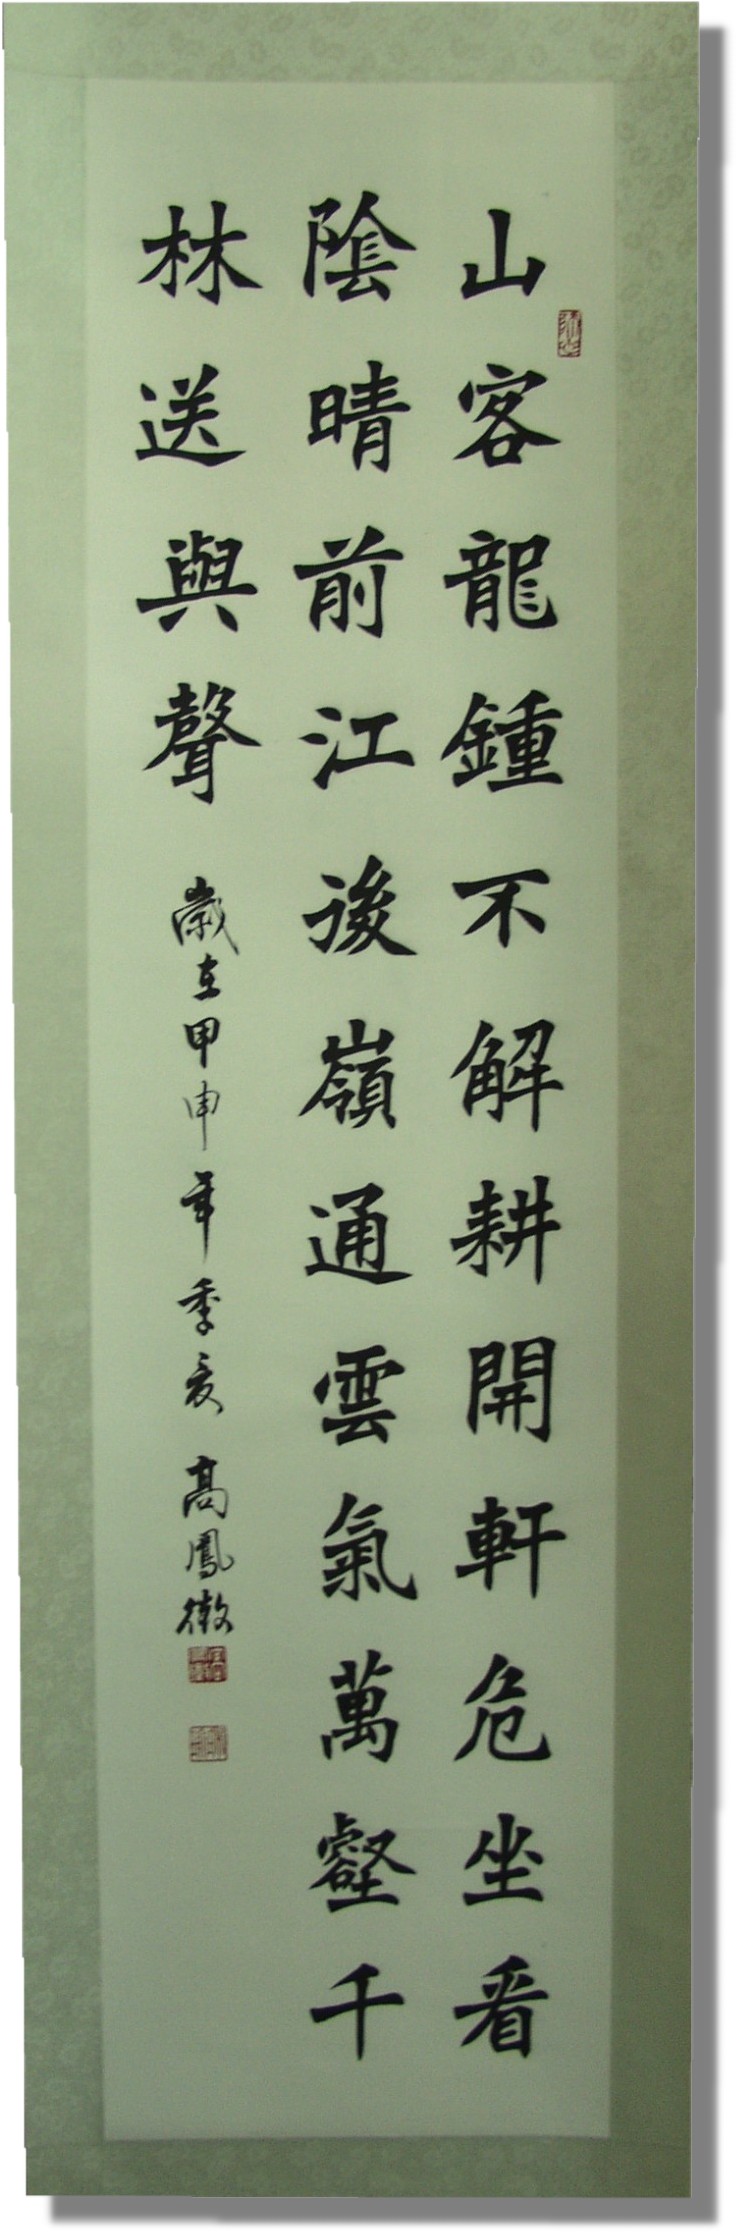 山客龍鍾不解耕開軒危坐看
陰晴前江後嶺通雲氣萬壑千
林送與聲 歲在甲申年季夏 高鳳